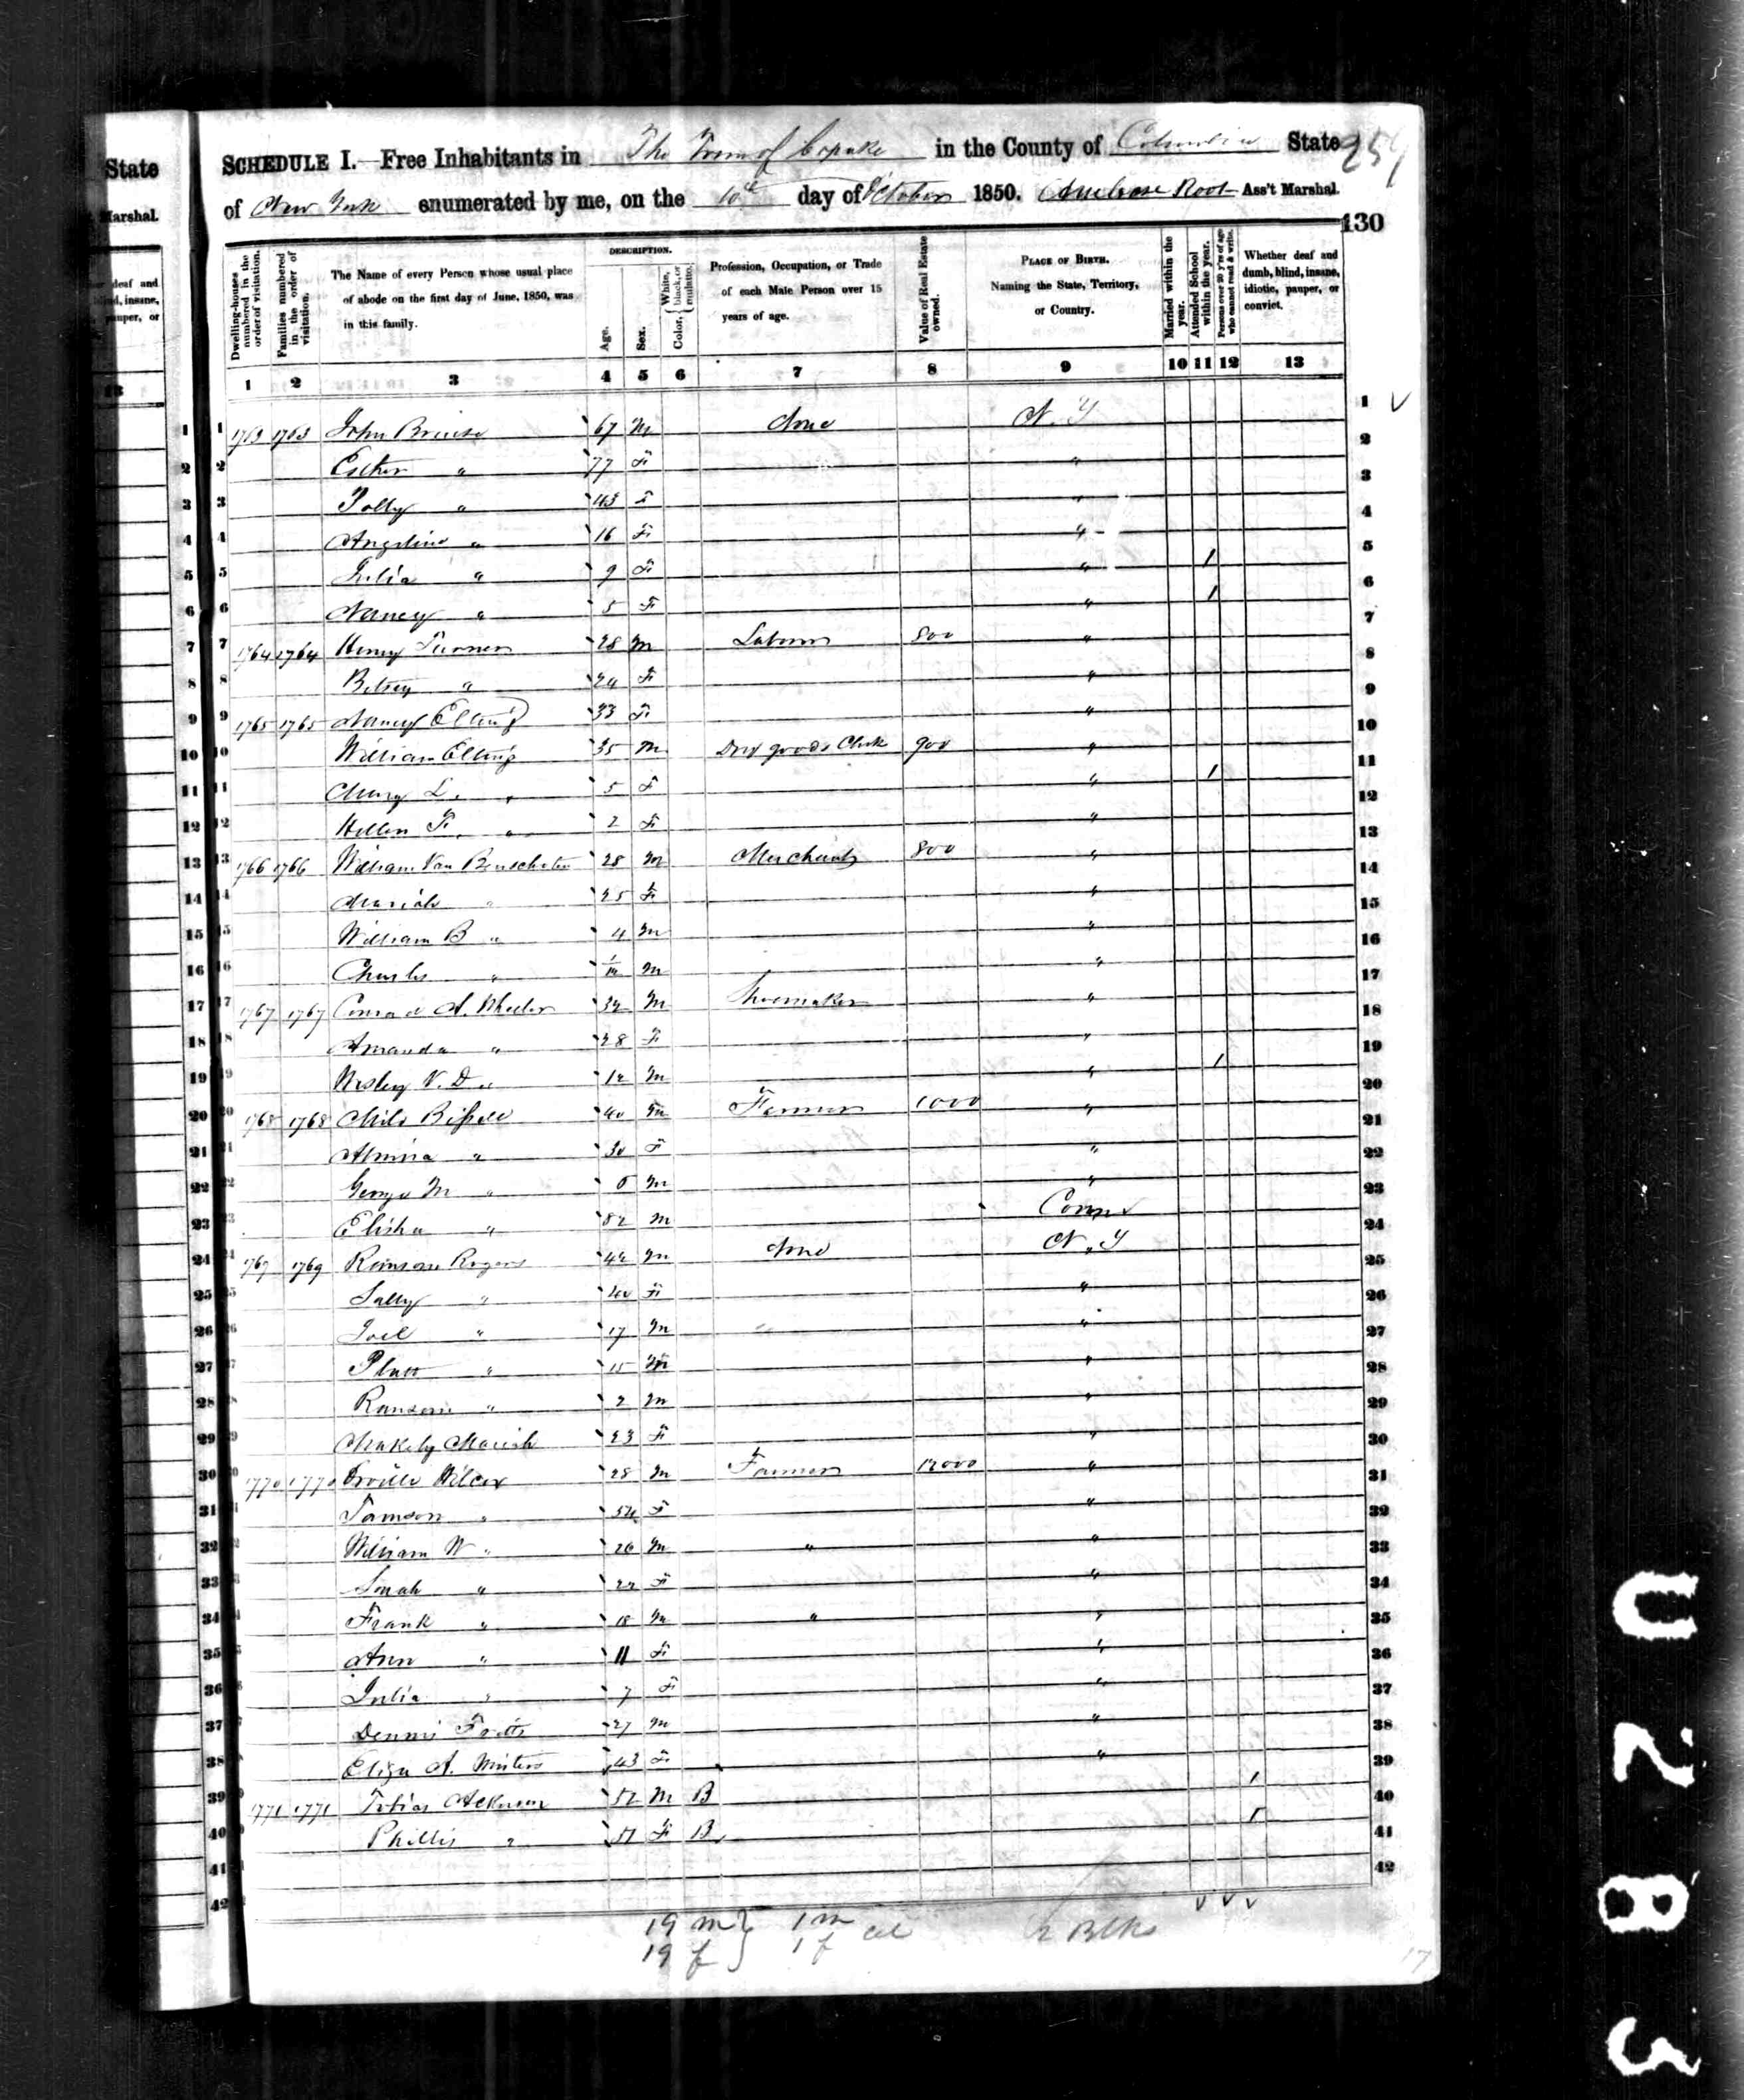 State
Marshal.
SCHEDULE I.—Free Inhabitants in The Town of Copake in the County of Columbia State
259
of New York enumerated by me, on the 10th day of October 1850. Ambrose Root Ass't Marshal.
130
Dwelling-houses numbered in the order of visitation.
Families numbered in the order of visitation.
The Name of every Person whose usual place of abode on the first day of June, 1850, was in this family.
DESCRIPTION.
Age.
Sex.
Color, { White, black, or mulatto.
Profession, Occupation, or Trade of each Male Person over 15 years of age.
Value of Real Estate owned.
PLACE OF BIRTH. Naming the State, Territory, or Country.
Married within the year.
Attended School within the year.
Persons over 20 y'rs of age who cannot read & write.
Whether deaf and dumb, blind, insane, idiotic, pauper, or convict.
1 2 3 4 5 6 7 8 9 10 11 12 13
1 1763 1763 John 67 M None N.Y
2 Esther " 77 F "
3 Polly " 43 F "
4 Angeline " 16 F "
5 Julia " 9 F " 1
6 Nancy " 5 F " 1
7 1764 1764 Henry Turner 28 M Laborer 800 "
8 Betsey " 24 F "
9 1765 1765 Nancy Elting 33 F "
10 William Elting 35 M Dry goods Clerk 900 "
11 Mary L. " 5 F " 1
12 Hellen F. " 2 F "
13 1766 1766 William Van Benschoten 28 M Merchant 800 "
14 Mariah " 25 F "
15 William B " 4 M "
16 Charles " M "
17 1767 1767 Conrad A. Wheeler 32 M Shoemaker "
18 Amanda " 28 F "
19 Wesley V. D " 12 M " 1
20 1768 1768 Milo Bissell 40 M Farmer 1000 "
21 Almira " 30 F "
22 George M " M "
23 Elisha " 82 M Conn
24 1769 1769 Rogers 42 M None N.Y
25 Sally " 40 F "
26 Joel " 17 M "
27 Platt " 15 M "
28 Ransom " 2 M "
29 Mariah 23 F "
30 1770 1770 Wilcox 28 M Farmer 12000 "
31 Tamson " 54 F "
32 William W " 26 M " "
33 Sarah " 22 F "
34 Frank " 18 M " "
35 Ann " 11 F "
36 Julia " 7 F "
37 Dennis 27 M "
38 Eliza A. Winters 43 F "
39 1771 1771 Tobias 52 M B 1
40 Phillis " 51 F B 1
41
42
19 m } 1 m col 2 Blks
19 f } 1 f
17
0283